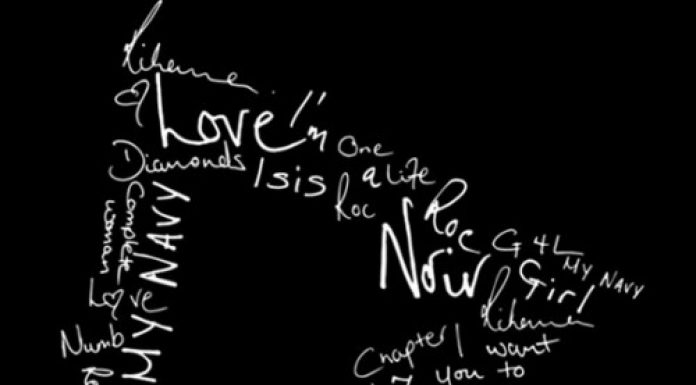 Rihanna
Love
I'm
One
Diamonds
Isis
a Life
Roc
Roc
Noir
G4L
My NAVY
Girl
Rihanna
Complete
woman
MY NAVY
Love
Numb
Chapter 1 want
7 you to